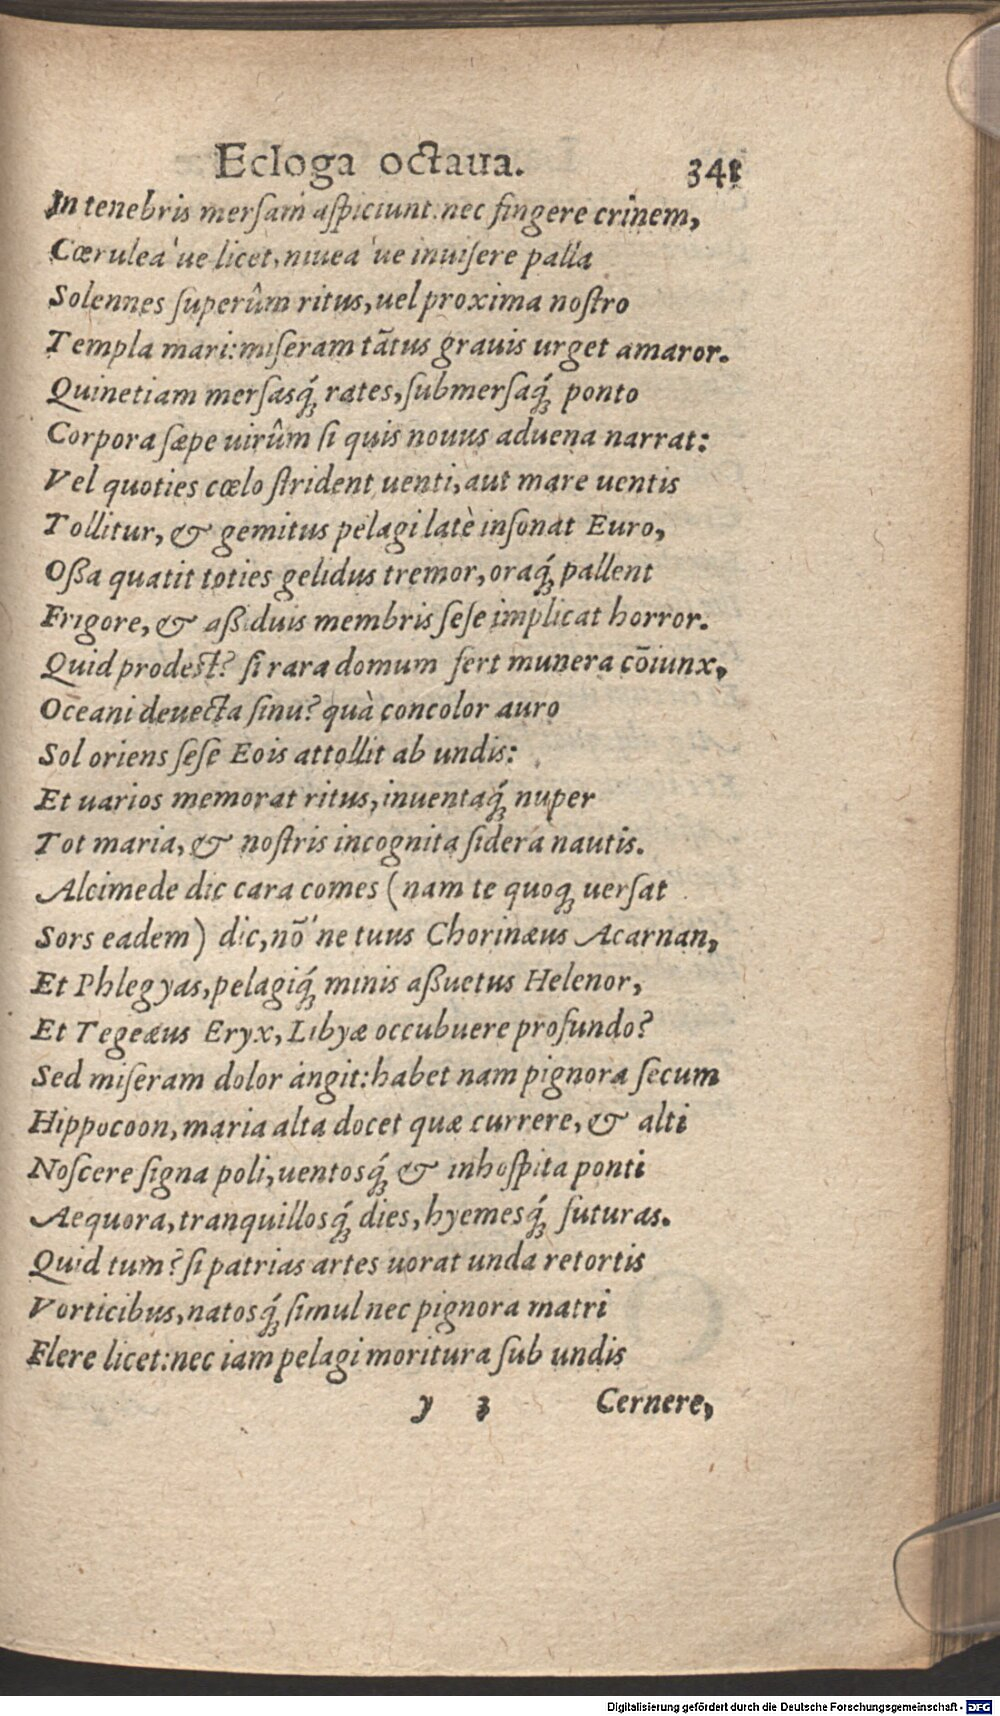 Ecloga octaua. 341
In tenebris mersam aspiciunt: nec fingere crinem,
Cœrulea 've licet, niuea 've inuisere palla
Solennes superûm ritus, uel proxima nostro
Templa mari: miseram tātus grauis urget amaror.
Quinetiam mersasq́; rates, submersaq́; ponto
Corpora sæpe uirûm si quis nouus aduena narrat:
Vel quoties cœlo strident uenti, aut mare uentis
Tollitur, & gemitus pelagi latè insonat Euro,
Oßa quatit toties gelidus tremor, oraq́; pallent
Frigore, & aßiduis membris sese implicat horror.
Quid prodest? si rara domum fert munera cōiunx,
Oceani deuecta sinu? quà concolor auro
Sol oriens sese Eois attollit ab undis:
Et uarios memorat ritus, inuentaq́; nuper
Tot maria, & nostris incognita sidera nautis.
Alcimede dic cara comes (nam te quoq; uersat
Sors eadem) dic, nō 'ne tuus Chorinæus Acarnan,
Et Phlegyas, pelagiq́; minis aßuetus Helenor,
Et Tegeæus Eryx, Libyæ occubuere profundo?
Sed miseram dolor angit: habet nam pignora secum
Hippocoon, maria alta docet quæ currere, & alti
Noscere signa poli, uentosq́; & inhospita ponti
Aequora, tranquillosq́; dies, hyemesq́; futuras.
Quid tum? si patrias artes uorat unda retortis
Vorticibus, natosq́; simul nec pignora matri
Flere licet: nec iam pelagi moritura sub undis
y 3 Cernere,
Digitalisierung gefördert durch die Deutsche Forschungsgemeinschaft - DFG